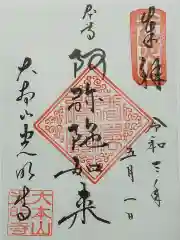 奉拝
令和
五月一日
本尊
阿弥陀如来
大本山光明寺
大本山